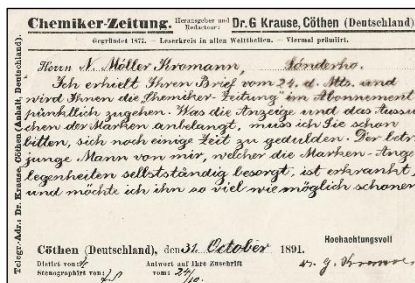 Chemiker-Zeitung. Herausgeber und Redacteur: Dr. G Krause, Cöthen (Deutschland)
Gegründet 1877. — Leserkreis in allen Welttheilen. — Viermal prämiirt.
Herrn N. Möller Kromann, Sönderho.
Ich erhielt Ihren Brief vom 24. d. Mts. und
wird Ihnen die „Chemiker-Zeitung" im Abonnement
pünktlich zugehen. Was die Anzeige und das Aussu
chen der Marken anbelangt, muss ich Sie schon
bitten, sich noch einige Zeit zu gedulden. Der betr.
junge Mann von mir, welcher die Marken-Ange
legenheiten selbstständig besorgt, ist erkrankt,
und möchte ich ihn so viel wie möglich schonen
Cöthen (Deutschland), den 31. October 1891.
Hochachtungsvoll
Dictirt von:
Antwort auf Ihre Zuschrift
Stenographirt von:
vom: 24/10.
Dr. G. Krause
Telegr.-Adr. Dr. Krause, Cöthen (Anhalt, Deutschland).